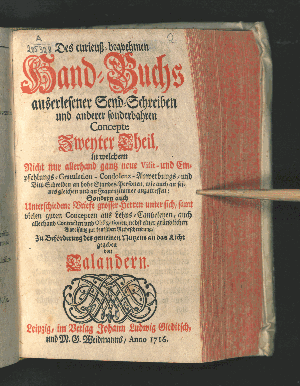 Des curieuß-bequehmen
Hand-Buchs
auserlesener Send-Schreiben
und anderer sonderbahren
Concepte
Zweyter Theil,
in welchem
Nicht nur allerhand gantz neue Visit- und Em-
pfehlungs- Gratulation- Condolenz- Anwerbungs- und
Bitt-Schreiben an hohe Standes-Personen, wie auch an sei-
nes gleichen und an Frauenzimmer anzutreffen;
Sondern auch
Unterschiedene Briefe grosser Herren unter sich, samt
vielen guten Concepten aus Lehns-Cantzeleyen, auch
allerhand
Zu Beförderung des gemeinen Nutzens an das Licht
gegeben
von
Talandern.
Leipzig, im Verlag Johann Ludwig Gleditsch,
und M. G. Weidmanns, Anno 1716.